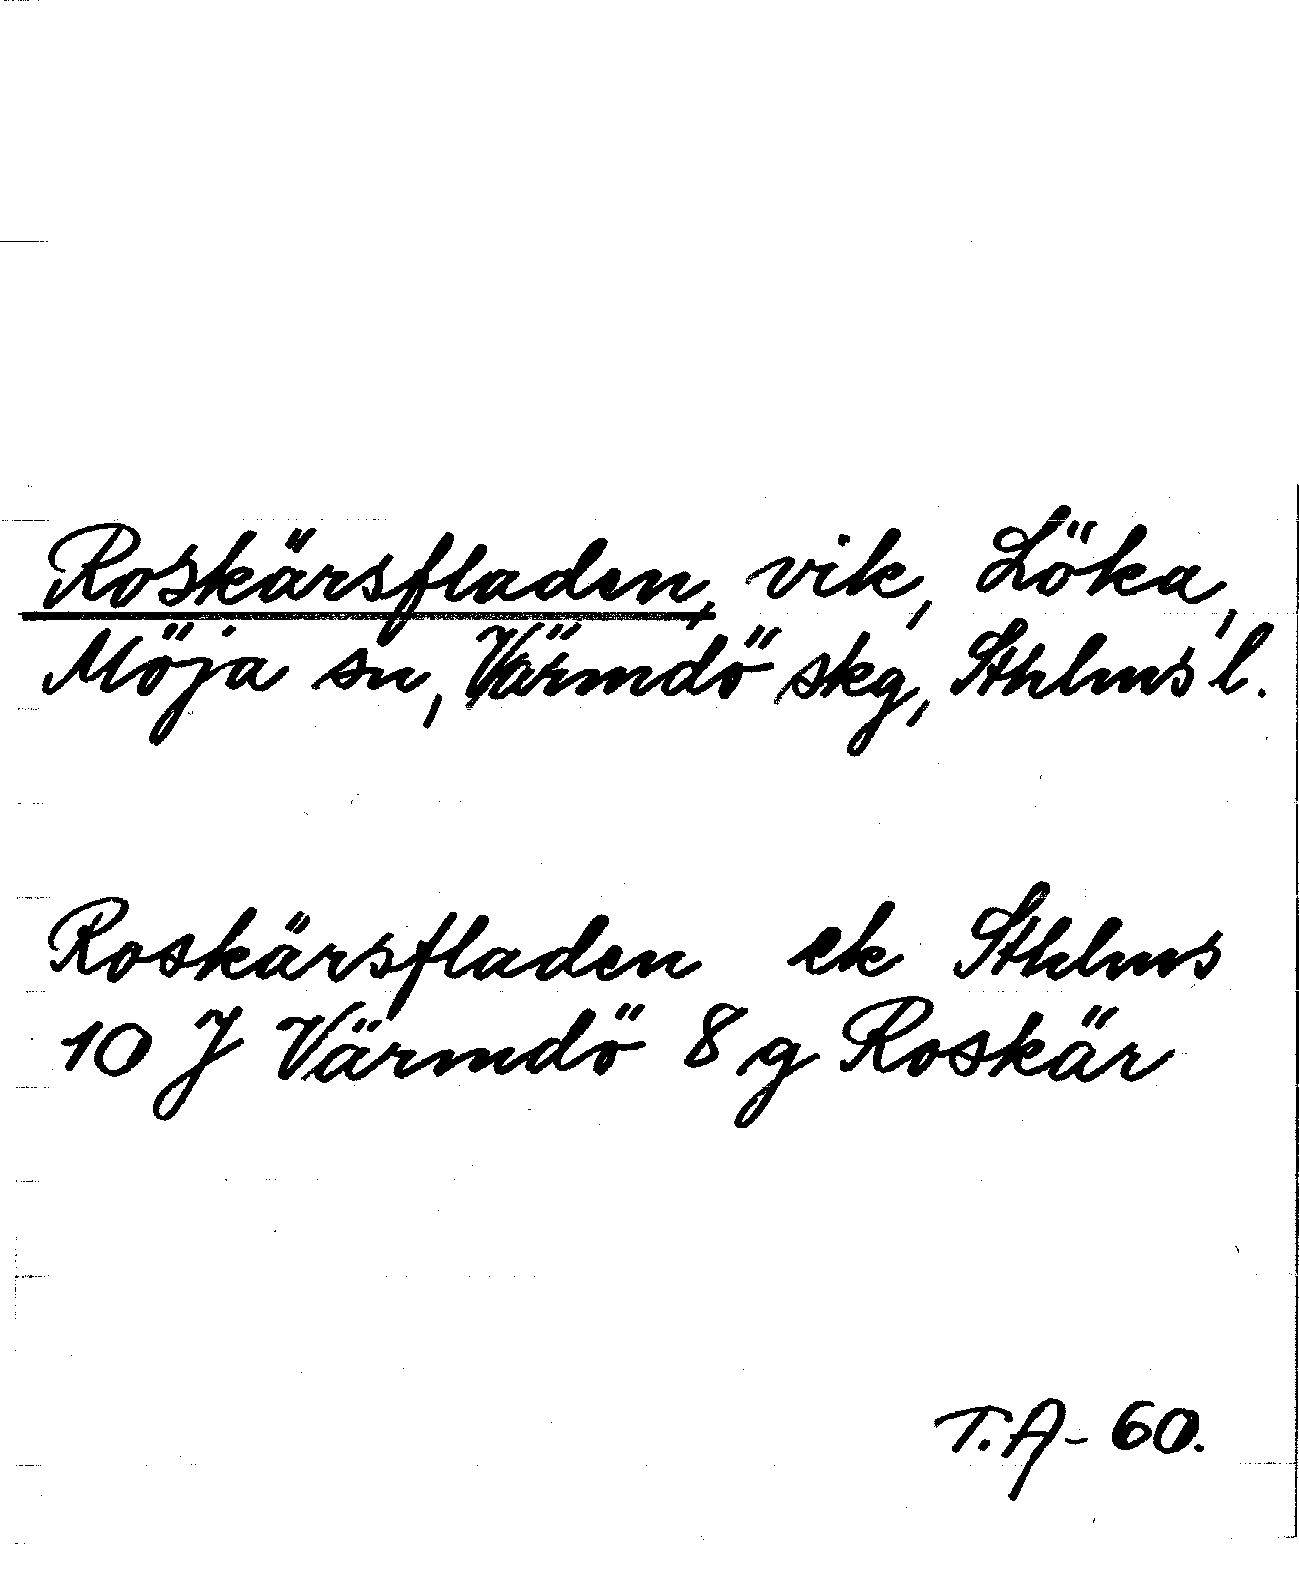 Roskärsfladen, vik, Löka,
Möja sn, Värmdö skg, Sthlms l.
Roskärsfladen ek Sthlms
10 J Värmdö 8 g Roskär
T.A- 60.